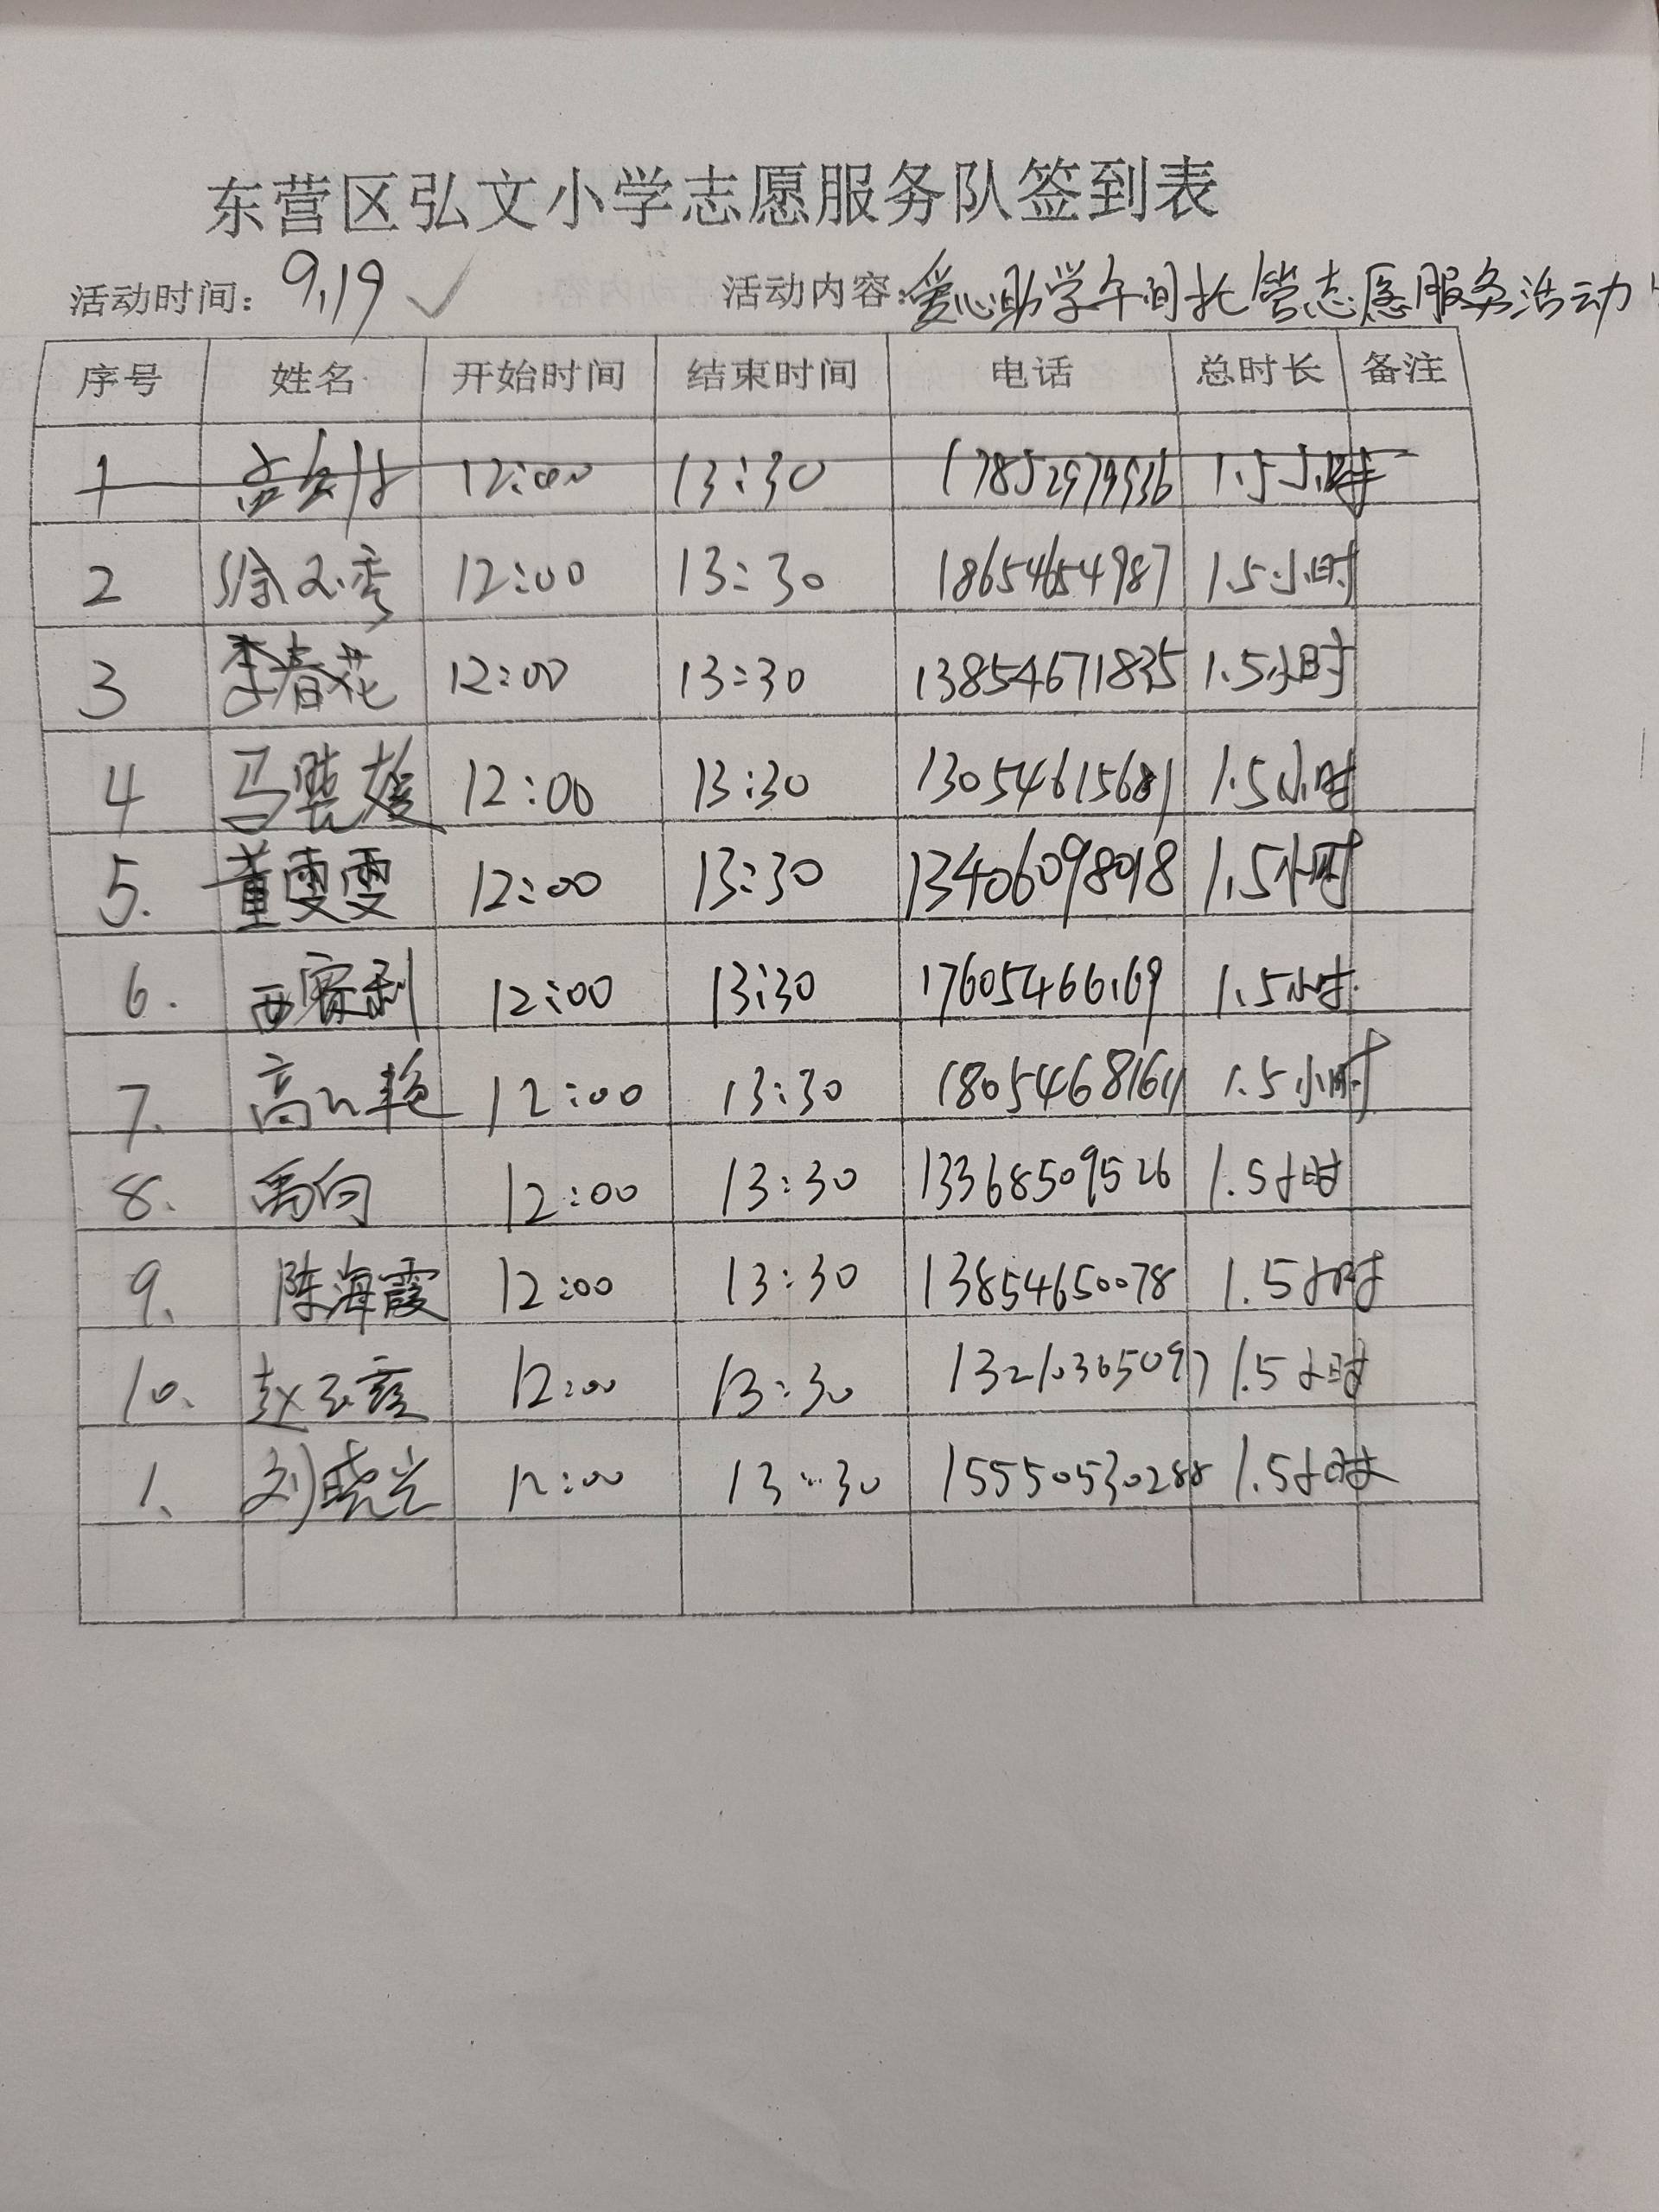 东营区弘文小学志愿服务队签到表
活动时间: 9.19 ✓ 活动内容: 爱心助学午间托管志愿服务活动
序号 姓名 开始时间 结束时间 电话 总时长 备注
1 12:00 13:30 1.5小时
2 徐 秀 12:00 13:30 18654654987 1.5小时
3 李春花 12:00 13:30 13854671835 1.5小时
4 马 12:00 13:30 13054615681 1.5小时
5. 董雯雯 12:00 13:30 13406098018 1.5小时
6. 西 利 12:00 13:30 17605466169 1.5小时
7. 高 艳 12:00 13:30 1.5小时
8. 禹向 12:00 13:30 13368509526 1.5小时
9. 陈海霞 12:00 13:30 13854650078 1.5小时
10. 赵玉 12:00 13:30 13210365097 1.5小时
1. 刘晓 12:00 13:30 15550530288 1.5小时